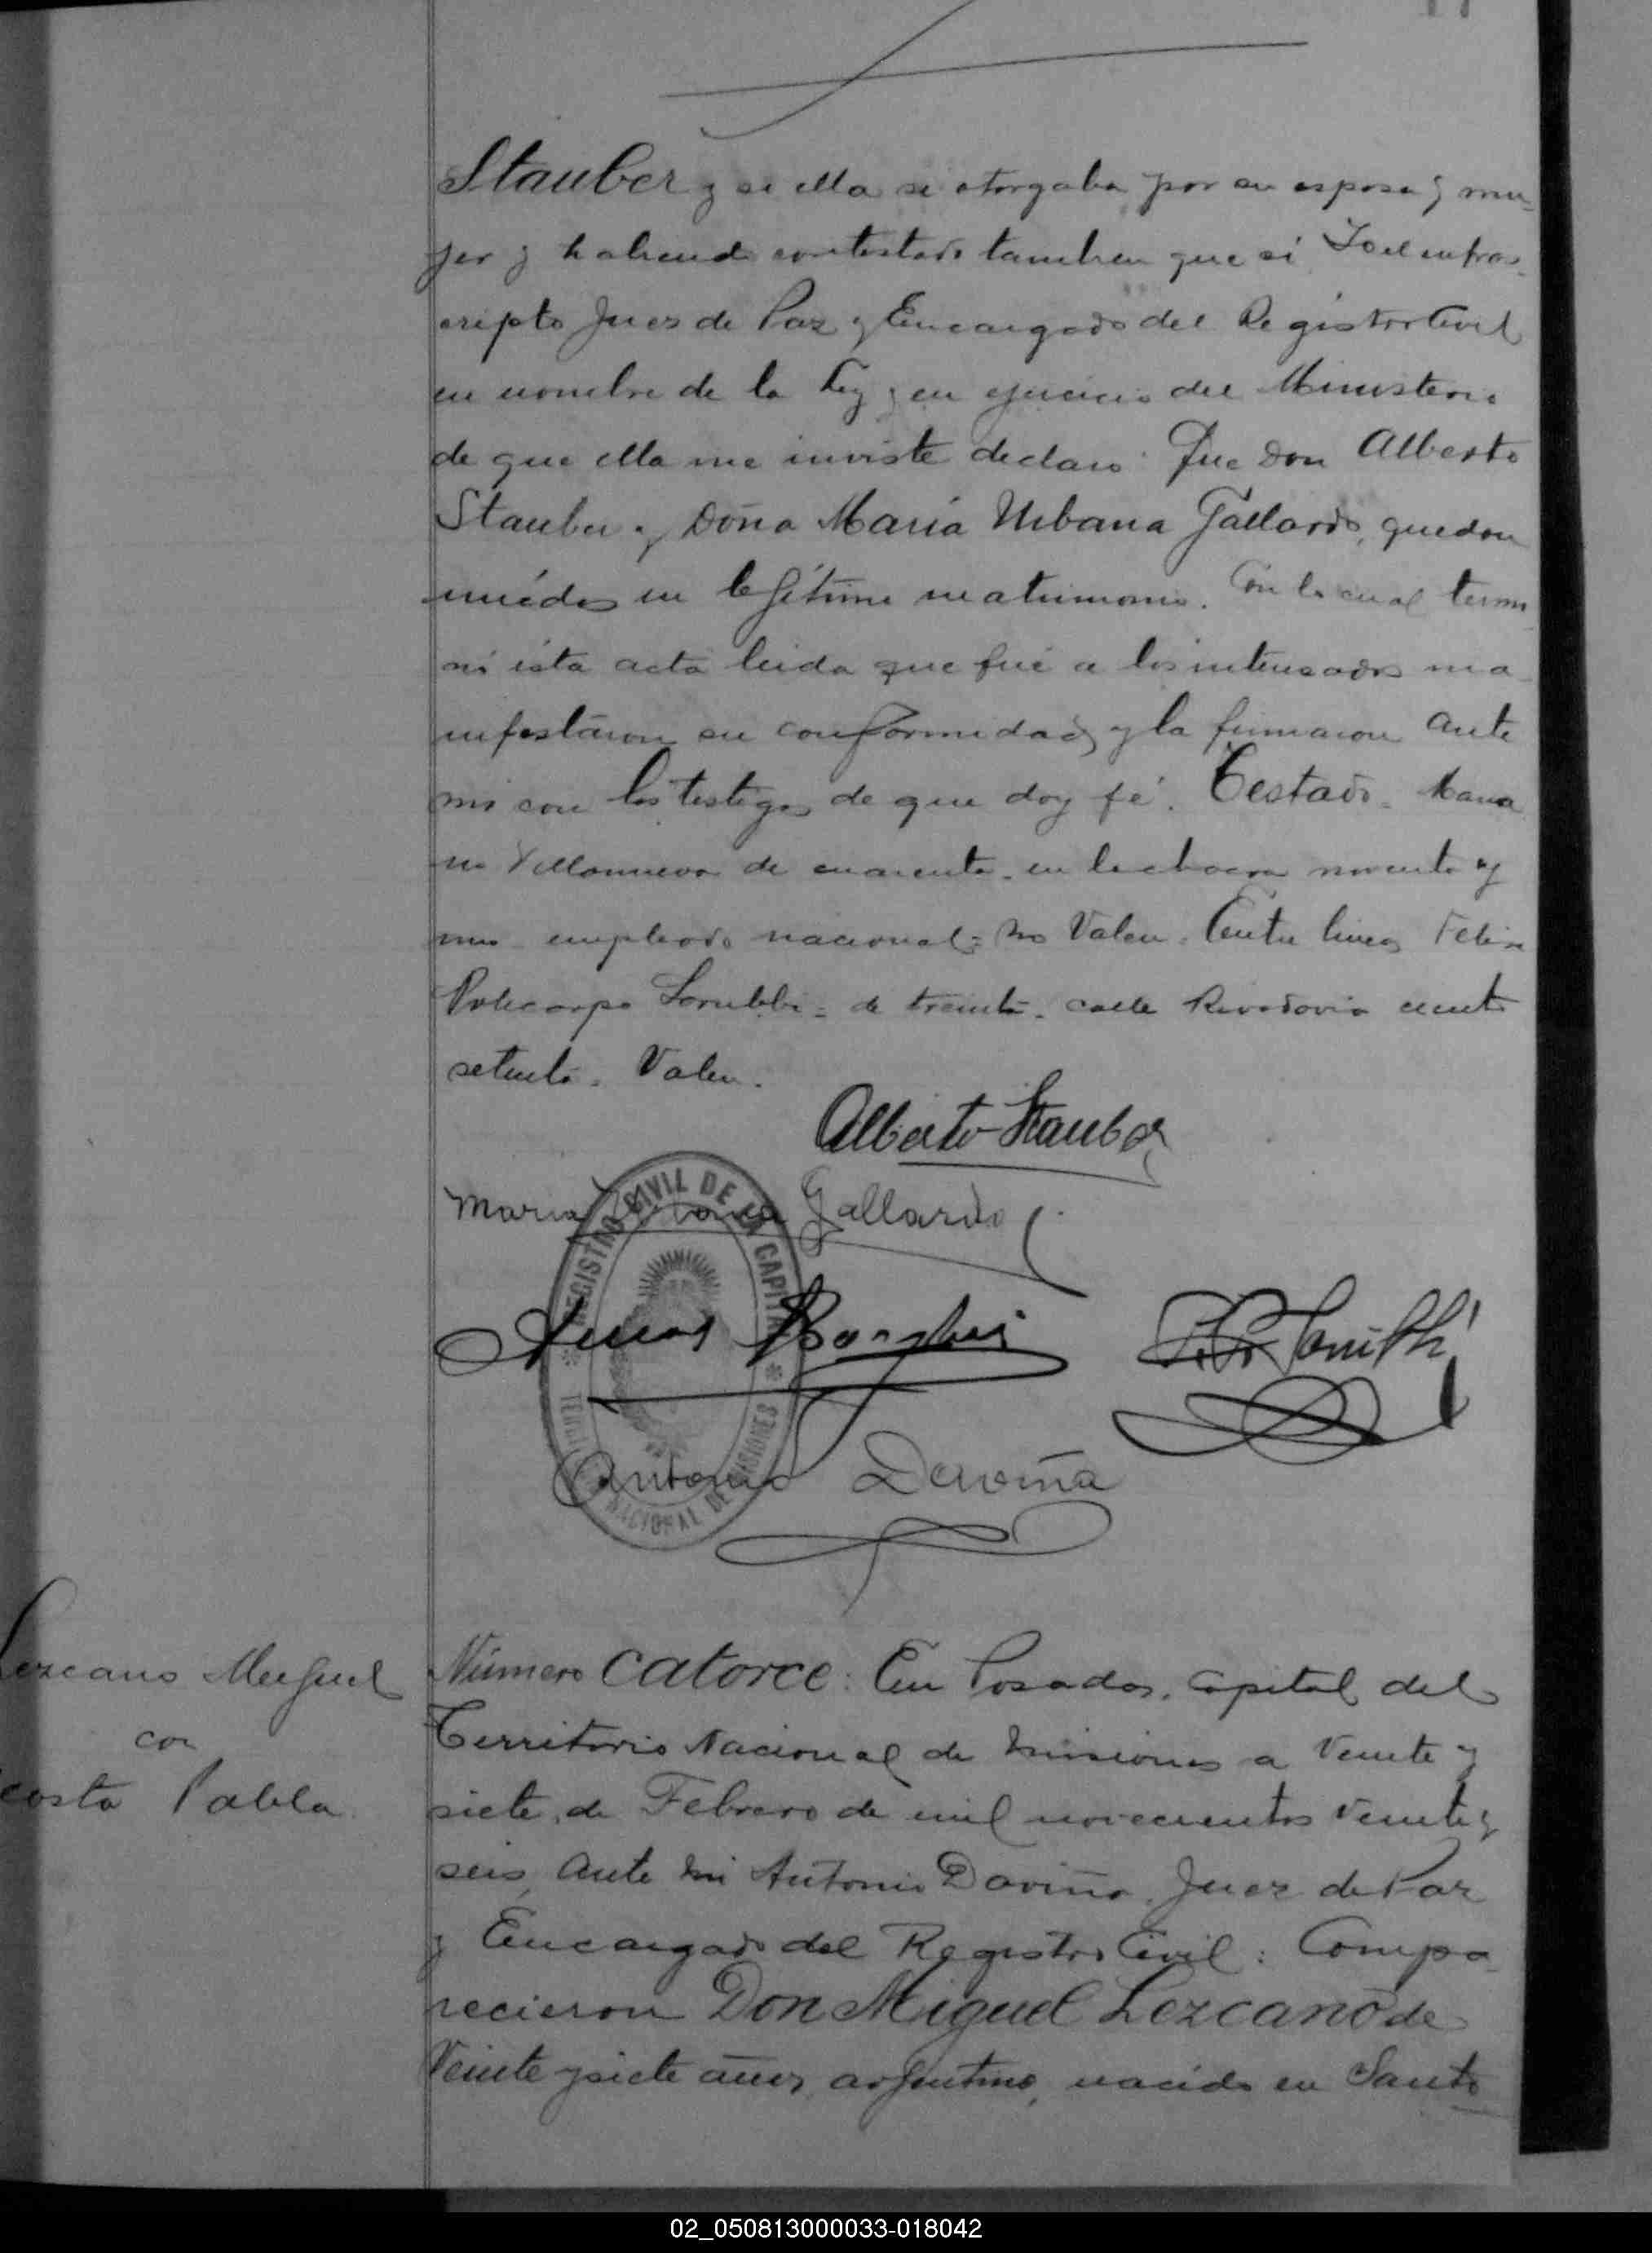 Stauber y si ella se otorgaba por su esposa y mu-
jer y habiendo contestado tambien que si Yo el infras-
cripto Juez de Paz y Encargado del Registro Civil
en nombre de la Ley y en ejercicio del Ministerio
de que ella me inviste declaro: Que Don Alberto
Stauber y Doña María Urbana Gallardo, quedan
unidos en legítimo matrimonio. Con lo cual termi
nó ésta acta leida que fué a los interesados ma-
nifestaron su conformidad y la firmaron ante
mi con los testigos de que doy fé. Testado = Maria
no Villanueva de cuarenta - en la chacra noventa y
uno empleado nacional = No Valen. Entre lineas
Policarpo = de treinta - calle Rivadavia ciento
setenta. Valen.
Alberto Stauber
Maria Urbana Gallardo
REGISTRO CIVIL DE LA CAPITAL
Borghi
TERRITORIO NACIONAL DE MISIONES
Antonio Daviña
Lezcano Miguel
con
costa Pabla
Número catorce: En Posadas, Capital del
Territorio Nacional de Misiones a veinte y
siete de Febrero de mil novecientos veinte y
seis, ante mi Antonio Daviña, Juez de Paz
y Encargado del Registro Civil: Compa-
recieron Don Miguel Lezcano de
Veinte y siete años, argentino, nacido en Santo
02_050813000033-018042